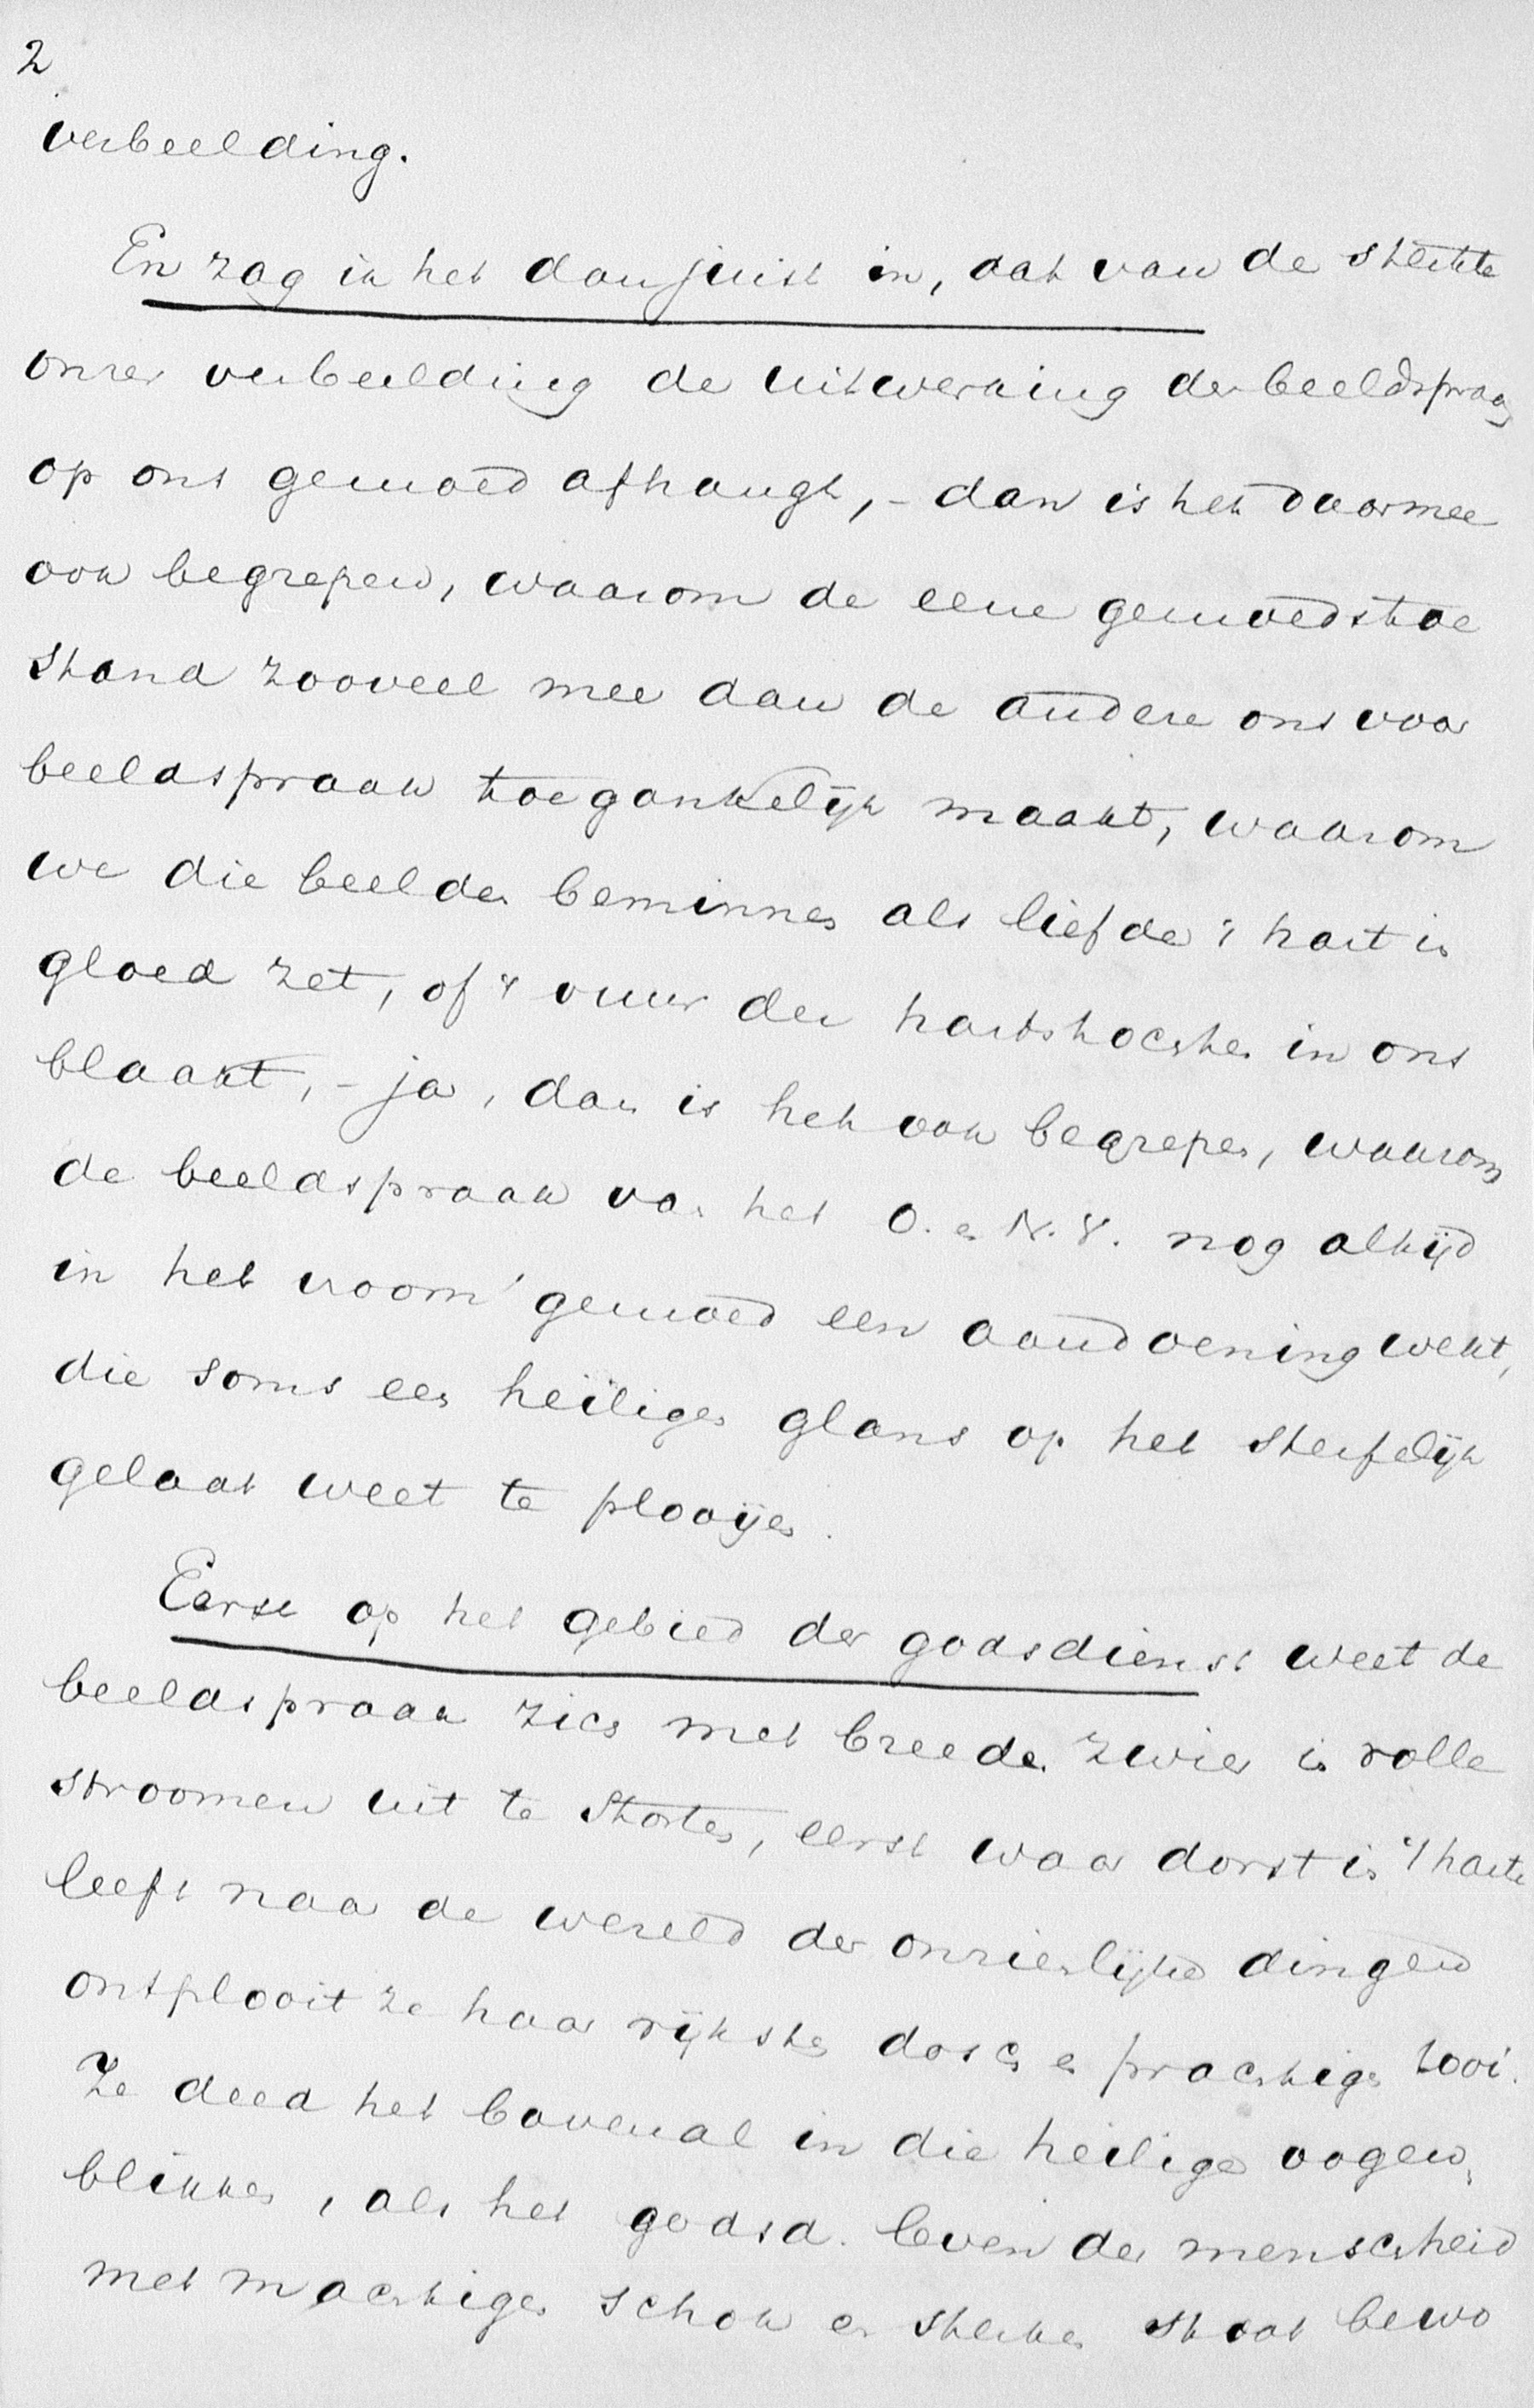 2
verbeelding.
En zag ik het dan juist in, dat van de sterkte
onzer verbeelding de uitwerking der beeldspraak
op ons gemoed afhangt, - dan is het daarmee
ook begrepen, waarom de eene gemoedstoe
stand zooveel meer dan de andere ons voor
beeldspraak toegankelijk maakt, waarom
we die beelden beminnen als liefde 't hart in
gloed zet, of 't vuur der hartstochten in ons
blaakt, - ja, dan is het ook begrepen, waarom
de beeldspraak van het O. en N.V. nog altijd
in het vroom gemoed een aandoening wekt,
die soms een heiligen glans op het sterfelijk
gelaat weet te plooijen.
Eerst op het gebied der godsdienst weet de
beeldspraak zich met breeden zwier in volle
stroomen uit te storten, eerst waar dorst in 't harte
leeft naar de wereld der onzienlijke dingen
ontplooit ze haar rijksten dosch en prachtigen tooi.
Ze deed het bovenal in die heilige oogen
blikken, als het godsd. leven der menschheid
met machtigen schok en sterken stoot bewo